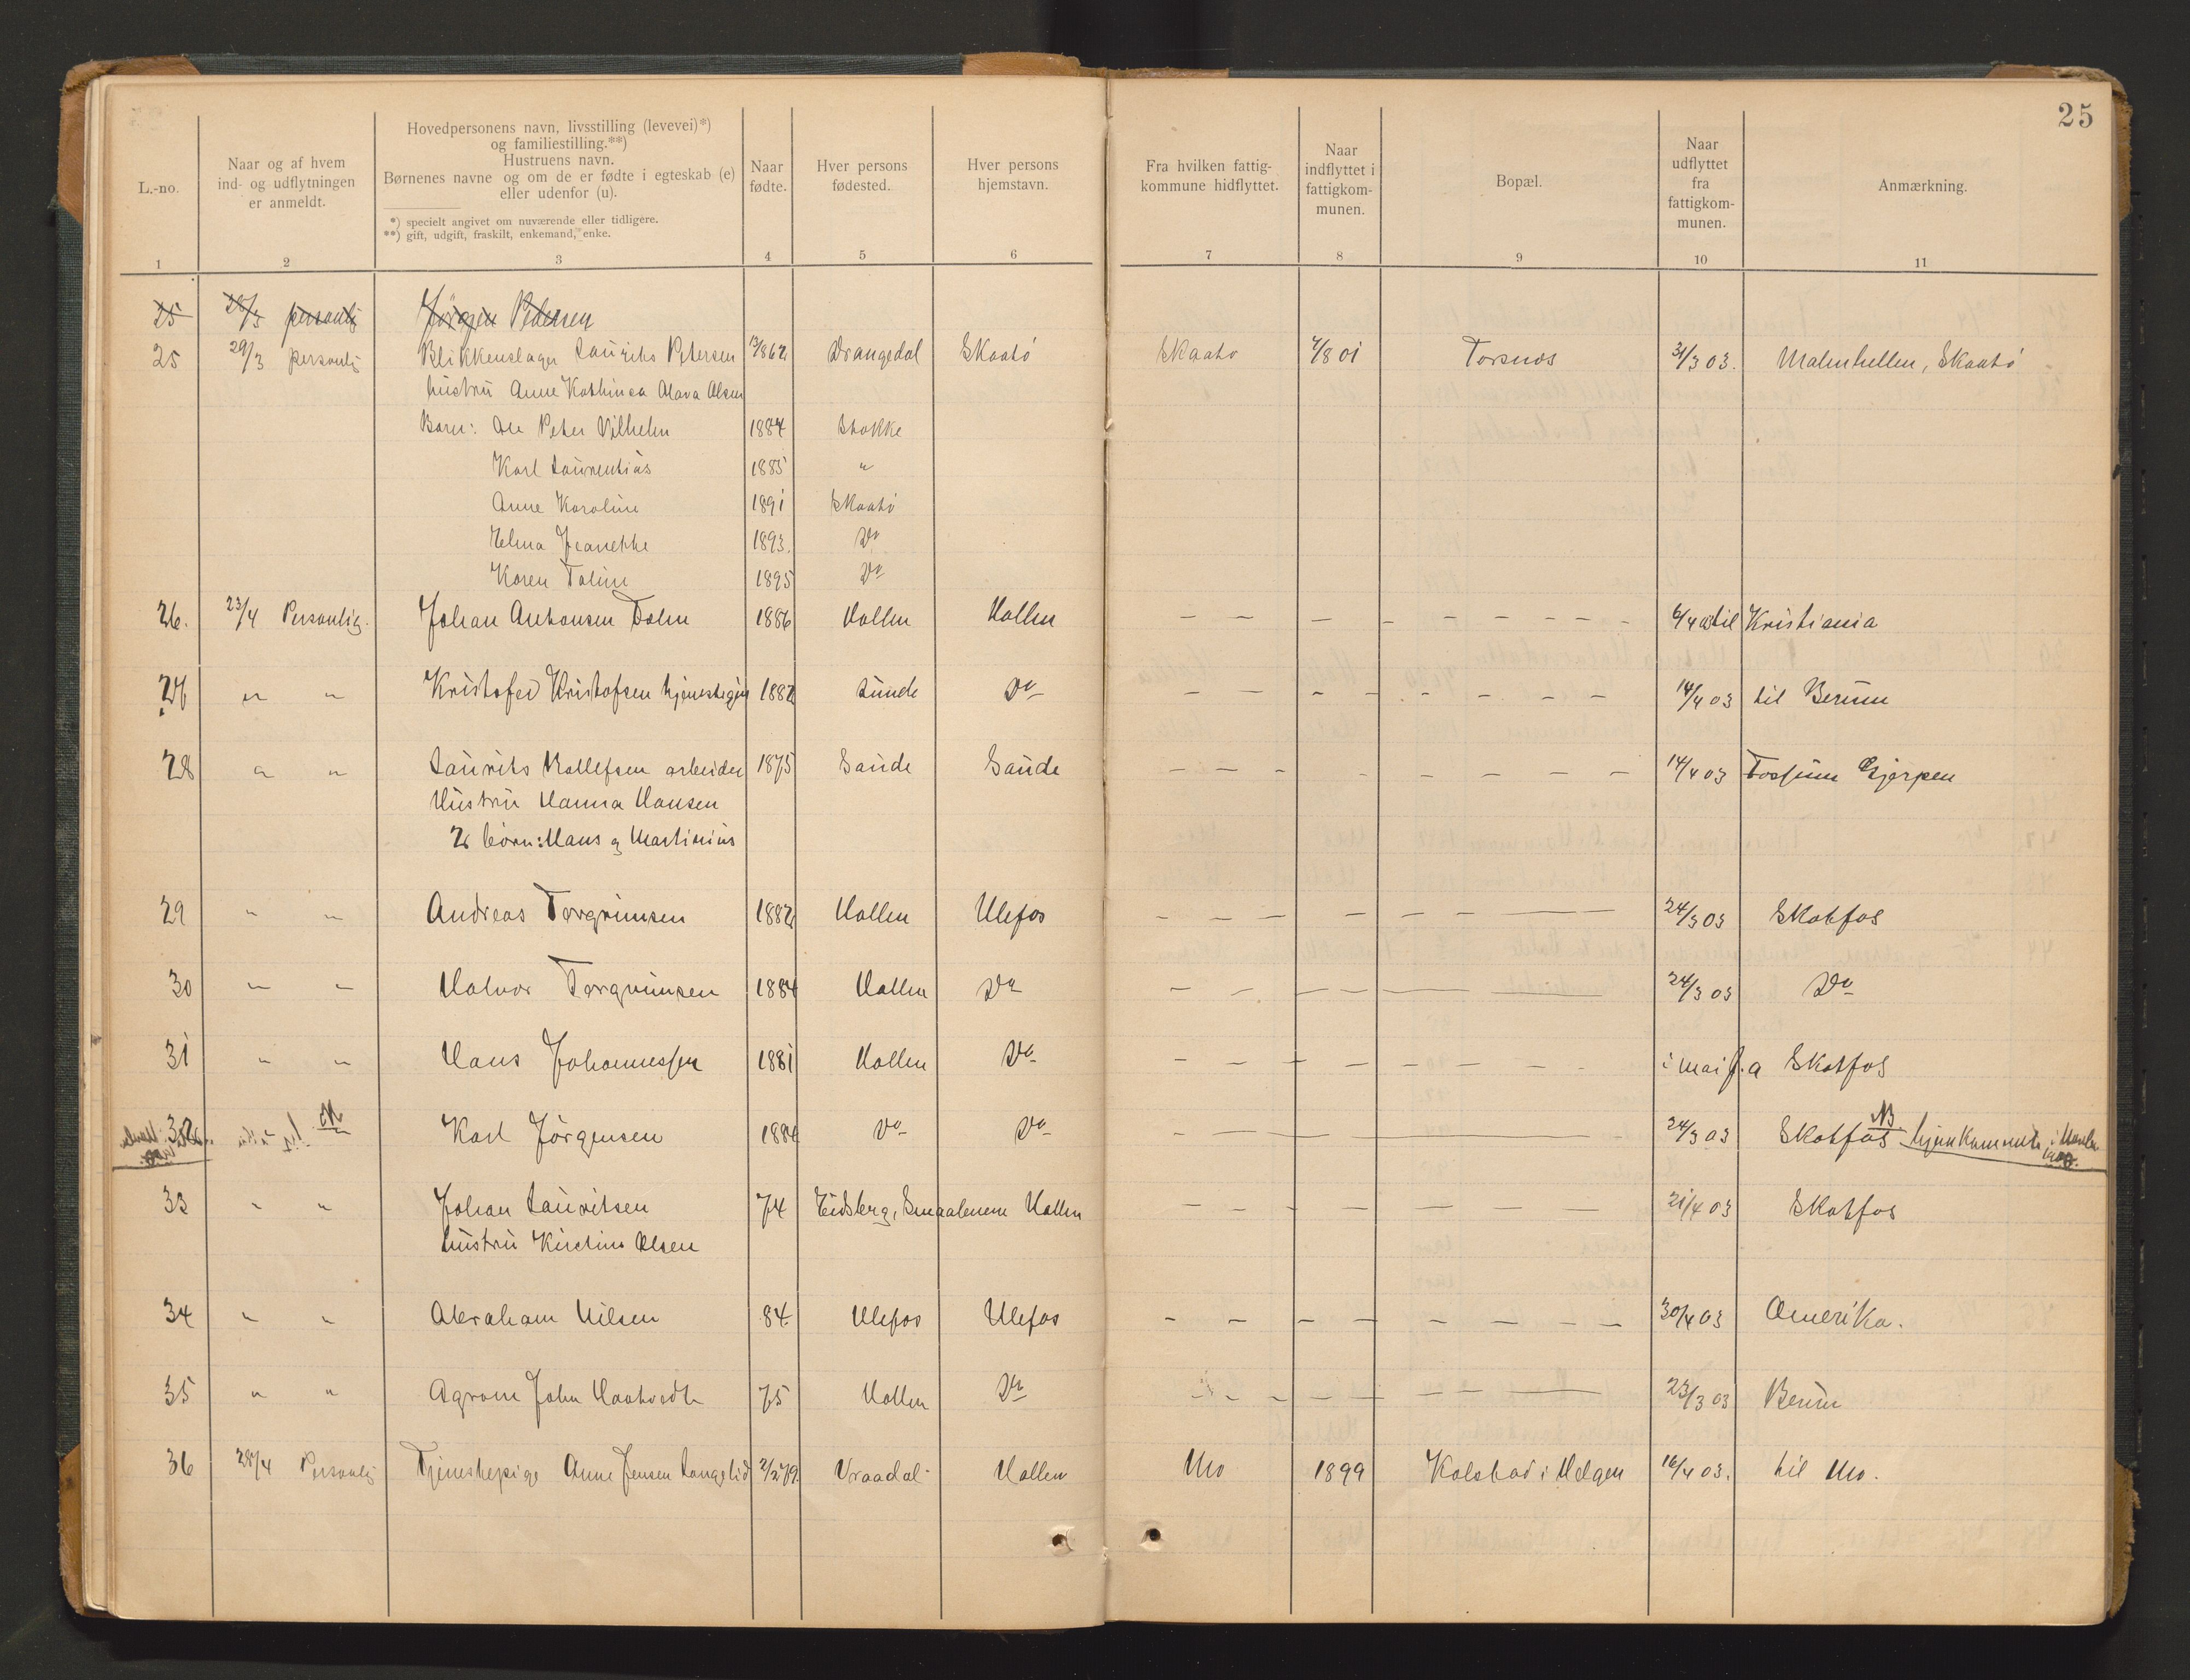 25
L.-no.
Naar og af hvem
ind- og udflytningen
er anmeldt.
Hovedpersonens navn, livsstilling (levevei)*)
og familiestilling.**)
Hustruens navn.
Børnenes navne og om de er fødte i egteskab (e)
eller udenfor (u).
*) specielt angivet om nuværende eller tidligere.
**) gift, udgift, fraskilt, enkemand, enke.
Naar
fødte.
Hver persons
fødested.
Hver persons
hjemstavn.
Fra hvilken fattig-
kommune hidflyttet.
Naar
indflyttet i
fattigkom-
munen.
Bopæl.
Naar
udflyttet
fra
fattigkom-
munen.
Anmærkning.
1 2 3 4 5 6 7 8 9 10 11
25 28/3 personlig Jörgen Pedersen
25 29/3 personlig Blikkenslager Laurits Petersen 13/862 Drangedal Skaatö Skaatö 7/8 01 Torsnes 31/3 03. Malmhellen, Skaatö
hustru Anne Kathinca Olava Olsen
Barn: Ole Peter Vilhelm 1884 Stokke
Karl Laurentius 1885 "
Anne Karoline 1891 Skaatö
Helma Jeanette 1893. Do
Karen Taline 1895 Do
26. 23/4 Personlig. Johan Antonsen Dolen 1886 Hollen Hollen — — — — — — — — — 6/4 03 til Kristiania
27 " " Kristofer Kristofsen tjenestegut 1882 Lunde Do — — — — — — — — — 14/4 03 til Berum
28 " " Laurits Rollefsen arbeider 1875 Saude Saude — — — — — — — — 14/4 03 Fossum Gjerpen
Hustru Hanna Hansen
2 börn: Hans og Martinius
29 " " Andreas Torgrimsen 1882 Hollen Ulefos — — — — — — — — 24/3 03 Skotfos
30 " " Halvor Torgrimsen 1884 Hollen Do — — — — — — 24/3 03 Do
31 " " Hans Johannessen 1881 Hollen Do — — — — — — — — i mai f.a Skotfos
32 " " Karl Jörgensen 1884 Do Do — — — — — 24/3 03 Skotfos NB. hjemkommet i
1900.
33 " " Johan Lauritsen 74 Eidsberg, Smaalenene Hollen — — — — — — — — 21/4 03 Skotfos
hustru Kirstine Olsen
34 " " Abraham Nilsen 84. Ulefos Ulefos — — — — — — — — 30/4 03 Amerika.
35 " " Agronom John Haatvedt 75 Hollen Do — — — — — — — — 23/3 03 Berum
36 28/4 Personlig Tjenestepige Anne Jensen Langelid 2/2 79 Vraadal Hollen Mo 1899 Kolstad i Helgen 16/4 03. til Mo.